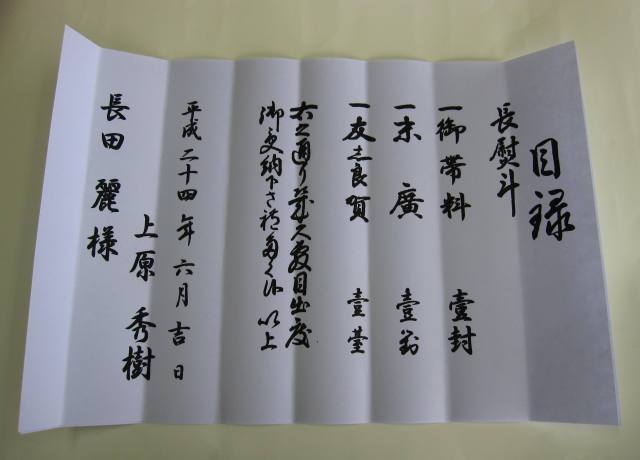 目録
長熨斗
一御帯料 壹封
一末廣 壹對
一友志良賀 壹臺
右之通り幾久敷目出度
御受納下さ禮度く候 以上
平成二十四年六月吉日
上原 秀樹
長田 麗様